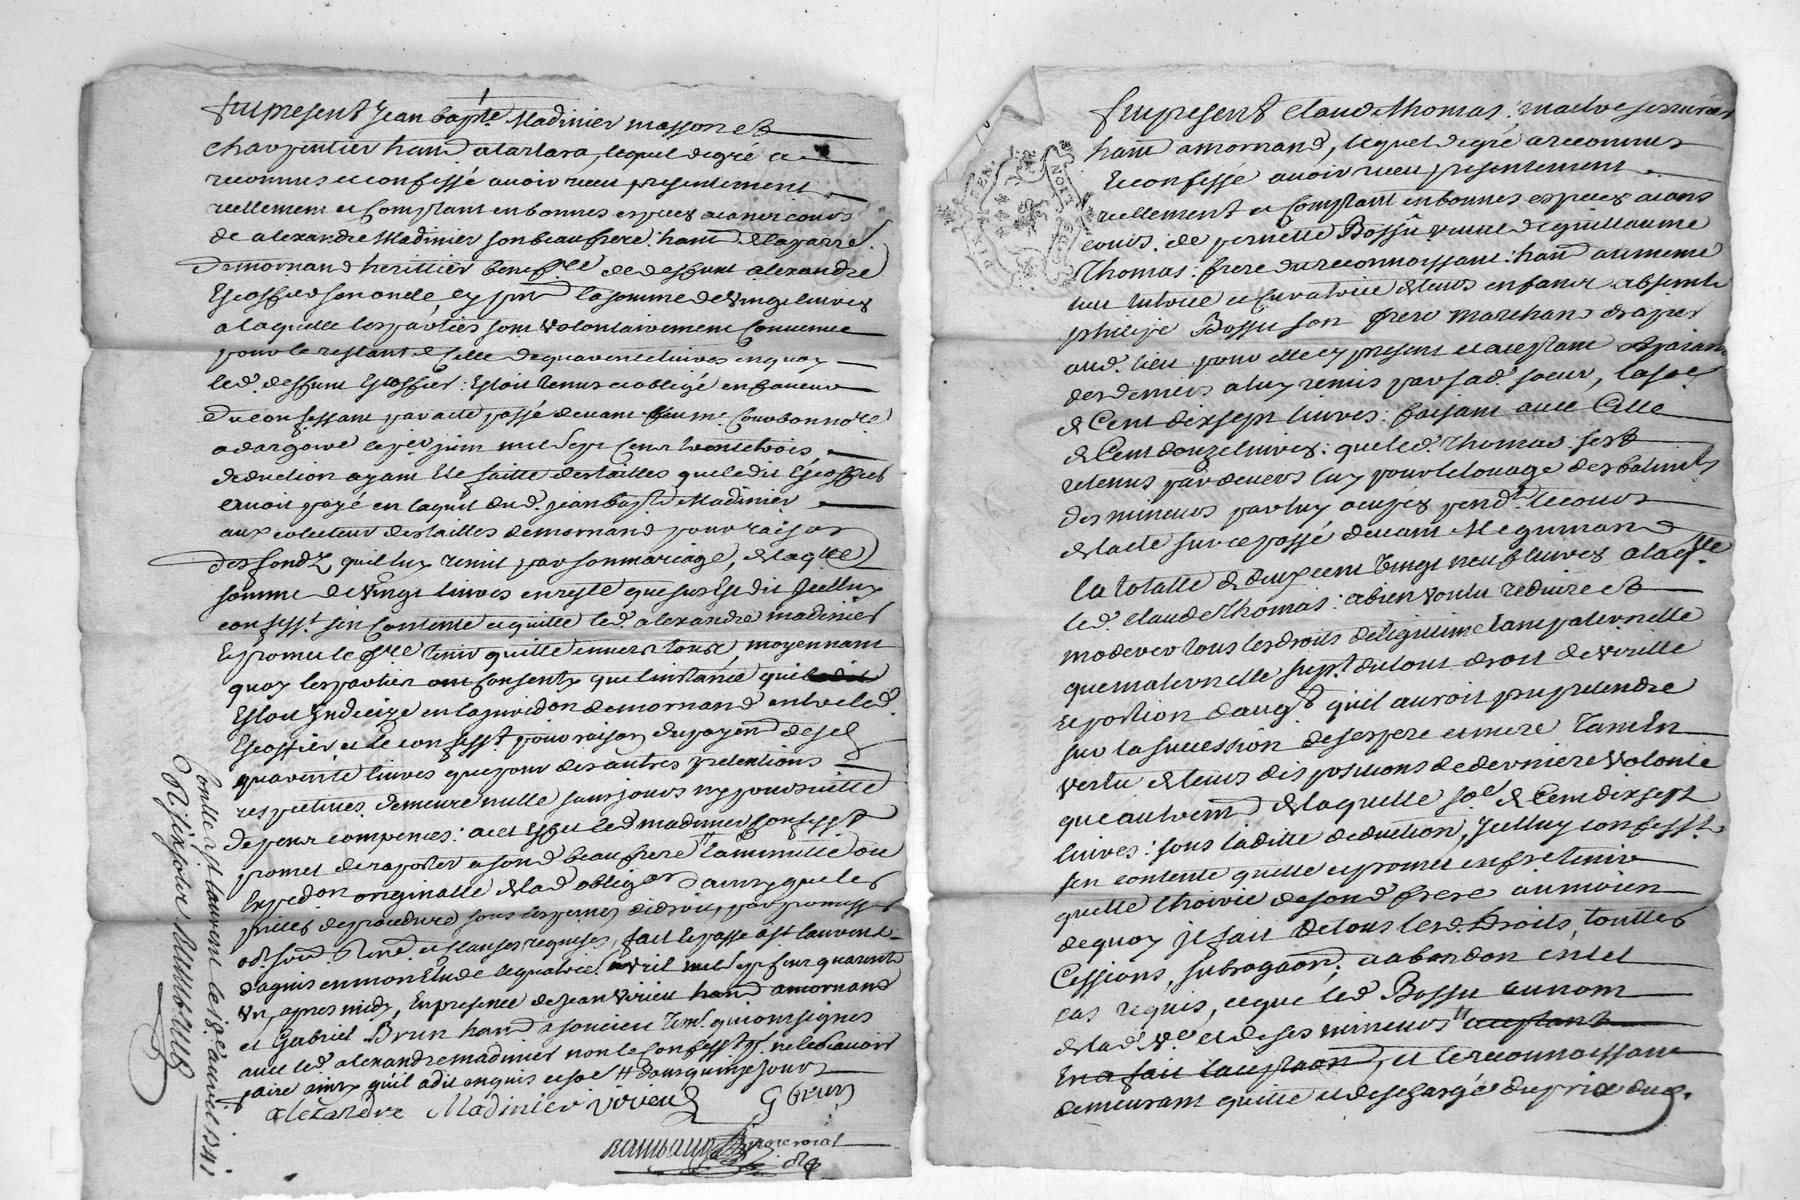 fut present Jean bapte. Madinier masson et
charpentier hant. a tartara, lequel de gré a
reconnus et confessé avoir receu presentement
reellement et comptant en bonnes especes aiant cours
de alexandre Madinier son beau frere: hant.
de mornand herittier benefre. de deffunt alexandre
Escoffier son oncle, cy pnt. la somme de vingt livres
a laquelle les parties sont volontairement convenue
pour le restant de celle de quarente livres en quoy
led. deffunt Escoffier: Estoit tenus et obligé en faveur
du confessant par acte passé devant feu me.
a dargoire le per. juin mil sept cent trente trois,
deduction ayant eté faitte des tailles que le dit Escoffier
avoit payé en laquit dud. jean bapt. Madinier
aux colecteur des tailles de mornand pour raison
des fondz quil luy remit par son mariage, de laqlle
somme de vingt livres en reste que sus Est dit Jcelluy
confesst. sen contente et quitte led. alexandre madinier
Et promet le fre. tenir quitte envers tous, moyennant
quoy les parties ont consenty que linstance qui
Estoit Indecize en la juridon de mornand entre led.
Escoffier et le confesst. pour raison du payemt. desd.
quarente livres que pour des autres pretentions
respectives demeure nulle sans jours ny poursuitte
depens compences: a cet effet led. madinier confesst.
promet de raporter a sond. beau frere la minutte ou
Expedon originalle de lad. obligaon ainsy que les
pieces de procedure sous les peines de droit, par promesses
obl. soumd. Renond. et clauses requises, fait et passé a st laurent
dagnis en mon Etude le quatrie. avril mil sept cent quarente
un, apres midy, En presence de Jean virieu hant. a mornand
et Gabriel Brun hant. a soucieu temt. qui ont signes
avec led. alexandre madinier non le confesst. pr. ne le scavoir
faire ainsy quil a dit enquis et some H dans quinze jours
alexandre Madinier virieu G brun
Rambaud notre royal
Contlle. a st laurent le 18e. avril 1741
R six sols Rambaud
fut present Claude thomas: maitre serrurier
hant. a mornand, lequel de gré a reconnus
Et confessé avoir receu presentement
reellement et comptant en bonnes especes aians
cours. de pernette Bossu veuve de guillaume
thomas: frere du reconnoissant: hant. au meme
lieu tutrice et curatrice de leurs enfants absente
philipe Bossu son frere marchand drapier
aud. lieu pour elle cy present et aceptant et paiant
des deniers a luy remis par sad. soeur, la soe.
de Cent dix sept livres: faisant avec Celle
de Cent douze livres: que led. thomas. sest
retenus par devers luy pour le louage des batiments
des mineurs par luy ocupés pendt. le cours
de lacte sur ce passé devant Me guinand
la totalle de deux cent vingt neuf livres a laqlle.
led. Claude thomas: a bien voulu reduire et
moderer tous les droits de legitime tant paternelle
que maternelle supt. du tout droit de virille
Et portion daugt. quil auroit pu pretendre
sur la succession de ses pere et mere tant En
vertu de leurs dispositions de derniere volonté
que autremt. de laquelle soe. de Cent dix sept
livres: sous la dite deduction, Jcelluy confesst.
sen contente quitte et promet en fre tenir
quitte lhoirie de sond. frere au moien
de quoy il fait de tous lesd. droits, touttes
Cessions, subrogaon; et abandon en tel
cas requis, et que led. Bossu au nom
de lad. ve. et de ses mineurs aceptant
En a fait laceptaon, et le reconnoissant
demeurant quitte et deschargé du prix dud.